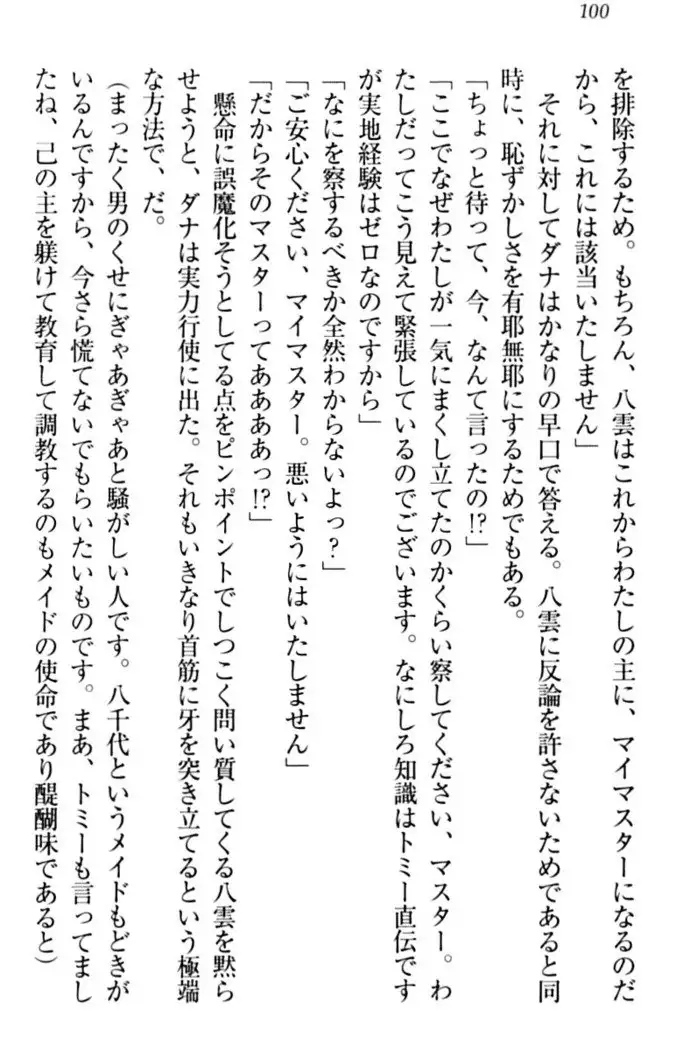 100
を排除するため。もちろん、八雲はこれからわたしの主に、マイマスターになるのだ
から、これには該当いたしません」
それに対してダナはかなりの早口で答える。八雲に反論を許さないためであると同
時に、恥ずかしさを有耶無耶にするためでもある。
「ちょっと待って、今、なんて言ったの!?」
「ここでなぜわたしが一気にまくし立てたのかくらい察してください、マスター。わ
たしだってこう見えて緊張しているのでございます。なにしろ知識はトミー直伝です
が実地経験はゼロなのですから」
「なにを察するべきか全然わからないよっ?」
「ご安心ください、マイマスター。悪いようにはいたしません」
「だからそのマスターってああああっ!?」
懸命に誤魔化そうとしてる点をピンポイントでしつこく問い質してくる八雲を黙ら
せようと、ダナは実力行使に出た。それもいきなり首筋に牙を突き立てるという極端
な方法で、だ。
(まったく男のくせにぎゃあぎゃあと騒がしい人です。八千代というメイドもどきが
いるんですから、今さら慌てないでもらいたいものです。まあ、トミーも言ってまし
たね、己の主を躾けて教育して調教するのもメイドの使命であり醍醐味であると)